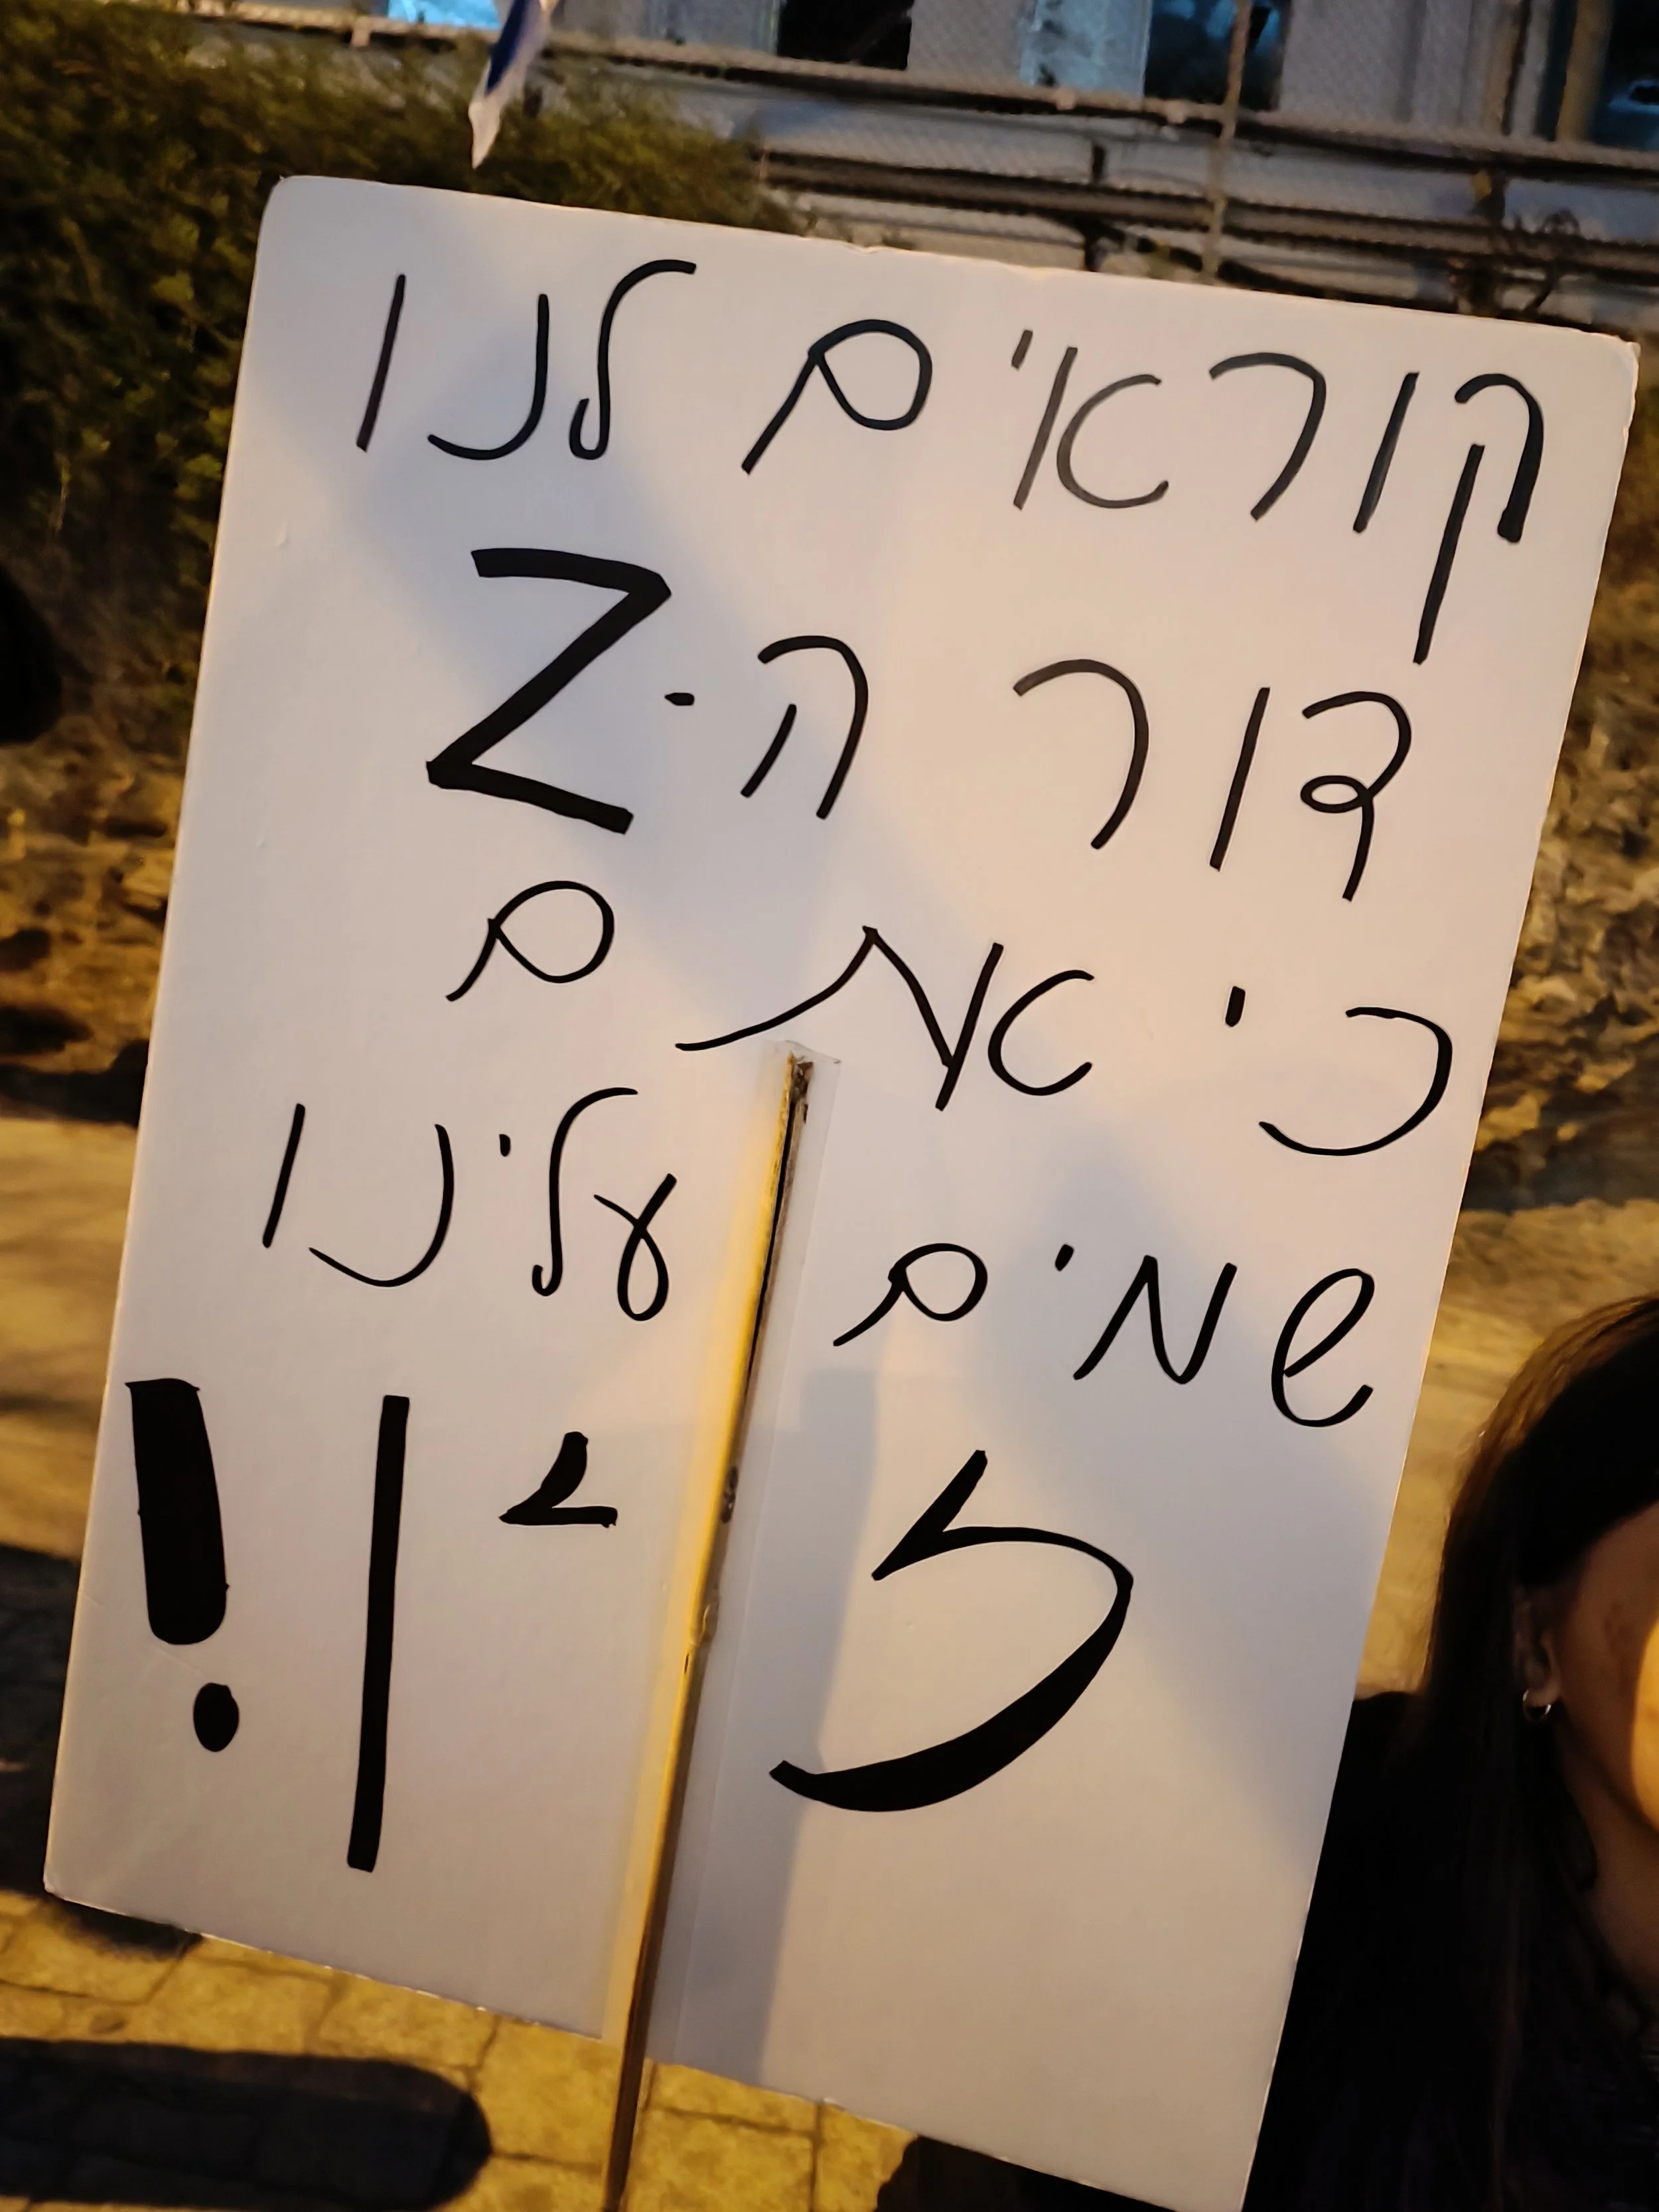 קוראים לנו
דור ה-Z
כי אתם
שמים עלינו
זין!